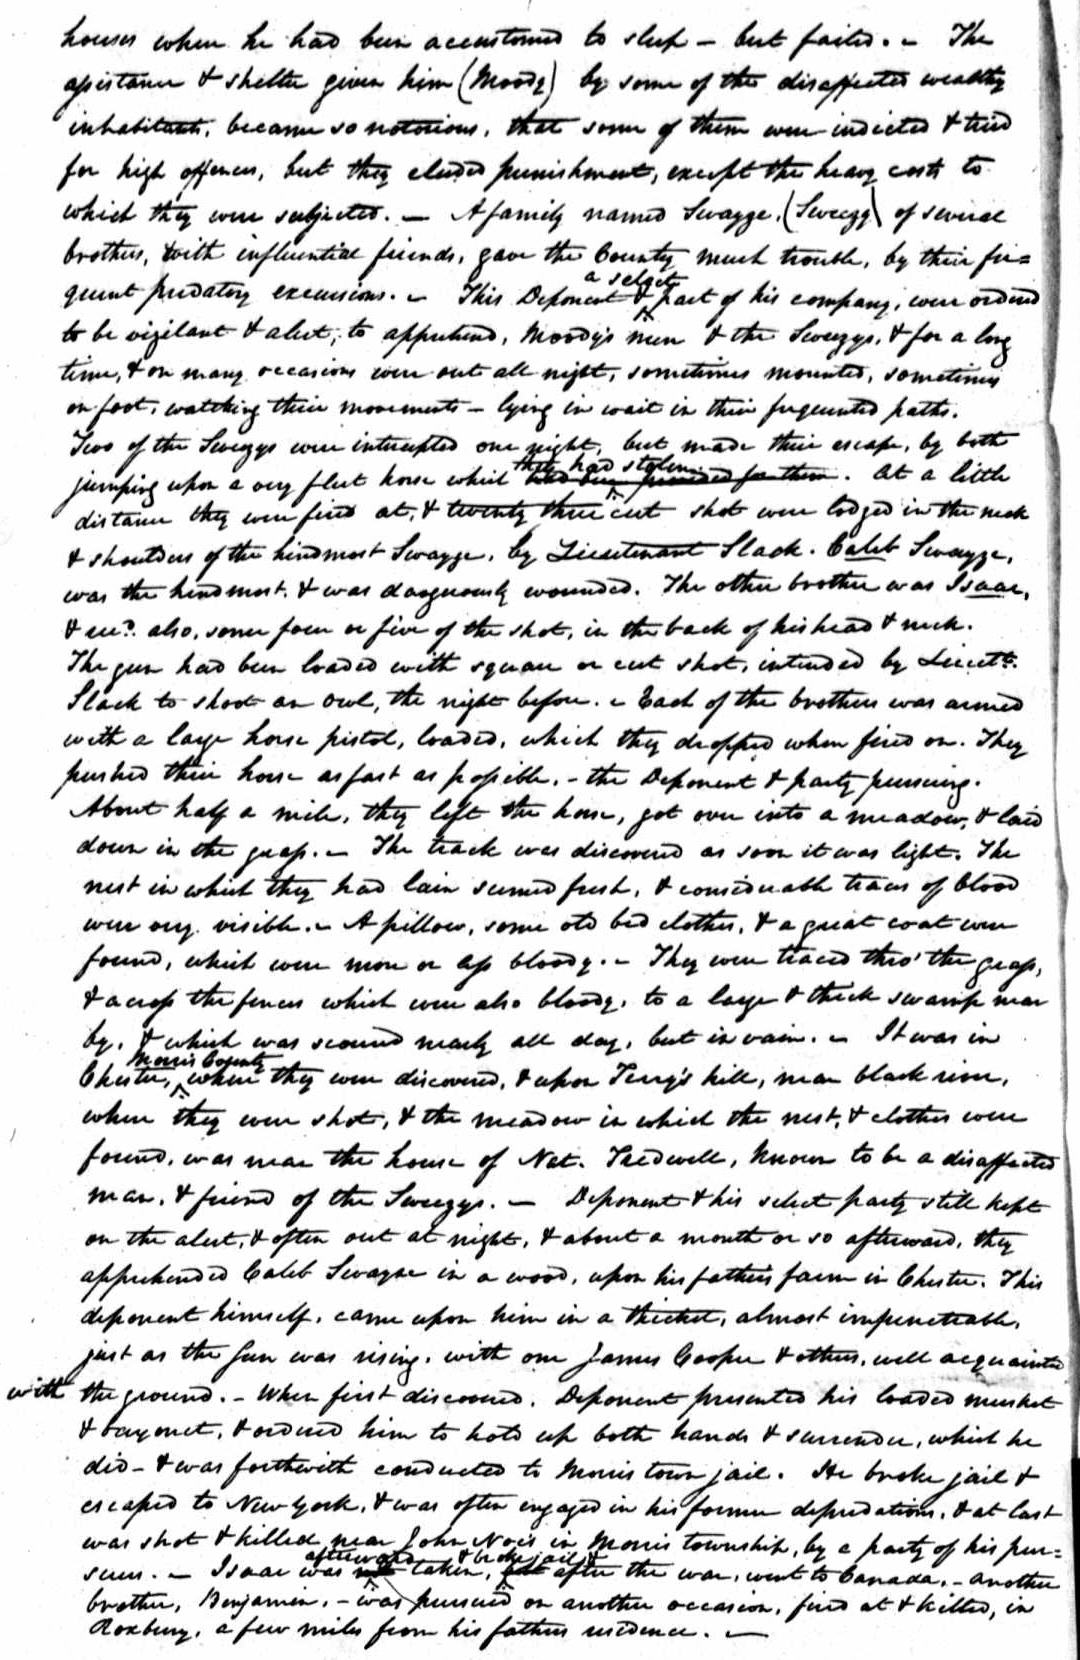 houses where he had been accustomed to sleep – but failed. – The
assistance & shelter given him (Moody) by some of the disaffected wealthy
inhabitants, became so notorious, that some of them were indicted & tried
for high offences, but they eluded punishment, except the heavy costs to
which they were subjected. – A family named Swayze, (Sweezy) of several
brothers, with influential friends, gave the County much trouble, by their fre=
quent predatory excursions. – This Deponent & a select part of his company, were ordered
to be vigilant & alert, to apprehend, Moody's men & the Sweezys, & for a long
time, & on many occasions were out all night, sometimes mounted, sometimes
on foot, watching their movements – lying in wait in their frequented paths.
Two of the Sweezys were intercepted one night, but made their escape, by both
jumping upon a very fleet horse which they had stolen had been provided for them. At a little
distance they were fired at, & twenty three cut shot were lodged in the neck
& shoulders of the hindmost Swayze, by Lieutenant Slack. Caleb Swayze,
was the hindmost, & was dangerously wounded. The other brother was Isaac,
& recd. also, some four or five of the shot, in the back of his head & neck.
The gun had been loaded with square or cut shot, intended by Lieutt.
Slack to shoot an owl, the night before. – Each of the brothers was armed
with a large horse pistol, loaded, which they dropped when fired on. They
pushed their horse as fast as possible, – the Deponent & party pursuing.
About half a mile, they left the horse, got over into a meadow, & laid
down in the grass. – The track was discovered as soon it was light. The
nest in which they had lain seemed fresh, & considerable traces of blood
were very visible. – A pillow, some old bed clothes, & a great coat were
found, which were more or less bloody. – They were traced thro' the grass,
& across the fences which were also bloody, to a large & thick swamp near
by, & which was scoured nearly all day, but in vain. – It was in
Chester, Morris County where they were discovered, & upon Terry's hill, near black river,
where they were shot, & the meadow in which the nest, & clothes were
found, was near the house of Nat. Tredwell, known to be a disaffected
man, & friend of the Sweezys. – Deponent & his select party still kept
on the alert, & often out at night, & about a month or so afterward, they
apprehended Caleb Swayze in a wood, upon his fathers farm in Chester. This
deponent himself, came upon him in a thicket, almost impenetrable,
just as the Sun was rising, with one James Cooper & others, well acquainted
with the ground. – When first discovered, Deponent presented his loaded musket
& bayonet, & ordered him to hold up both hands & surrender, which he
did – & was forthwith conducted to Morristown jail. He broke jail &
escaped to New York, & was often engaged in his former depredations, & at last
was shot & killed near John Nois in Morris township, by a party of his pur=
suers. – Isaac was afterward taken, & broke jail & after the war, went to Canada. – Another
brother, Benjamin, – was pursued on another occasion, fired at & killed, in
Roxbury, a few miles from his fathers residence. –